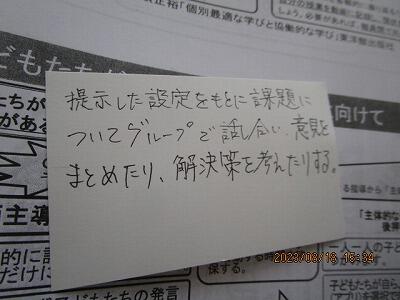 正裕「個別最適な学びと協働的な学び」東洋館出版社
提示した設定をもとに課題に
ついてグループで話し合い、意見を
まとめたり、解決策を考えたりする。
向けて
がある
主導
「主体的な
一人一人の子ど
子どもたちが自ら、
保する。
的に
だけに
どもたちの発言
2023/08/16 15:34